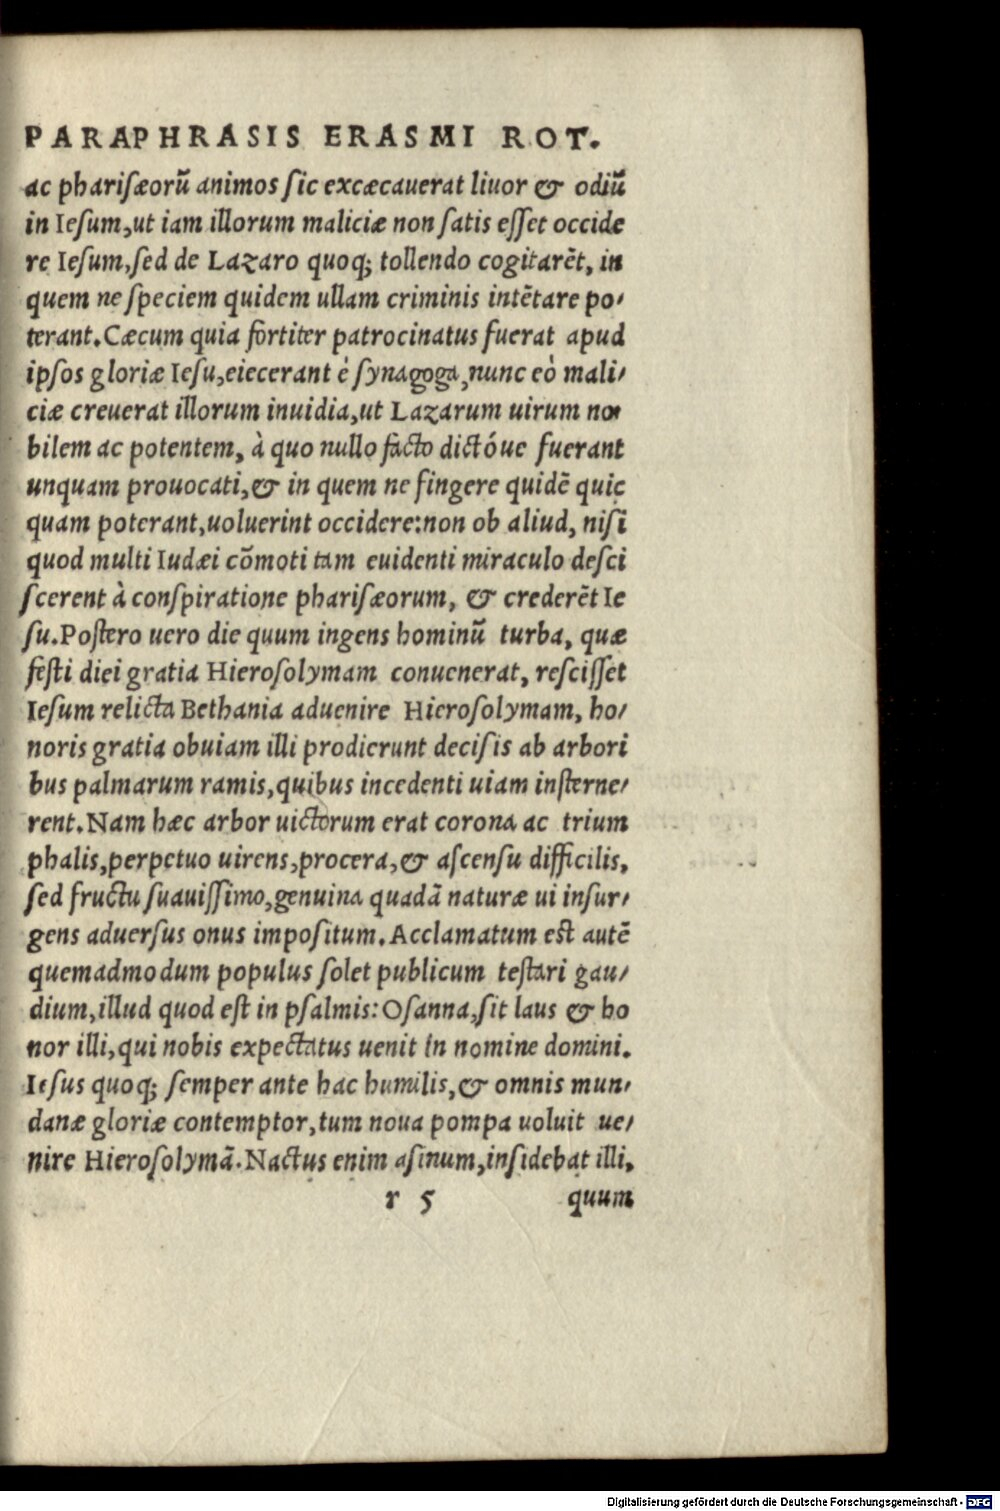 PARAPHRASIS ERASMI ROT.
ac phariſæorũ animos ſic excæcauerat liuor & odiũ
in Ieſum,ut iam illorum maliciæ non ſatis eſſet occide
re Ieſum,ſed de Lazaro quoq; tollendo cogitarẽt, in
quem ne ſpeciem quidem ullam criminis intẽtare po⸗
terant.Cæcum quia fortiter patrocinatus fuerat apud
ipſos gloriæ Ieſu,eiecerant è ſynagoga,nunc eò mali⸗
ciæ creuerat illorum inuidia,ut Lazarum uirum no⸗
bilem ac potentem, à quo nullo facto dictóue fuerant
unquam prouocati,& in quem ne fingere quidẽ quic
quam poterant,uoluerint occidere:non ob aliud, niſi
quod multi Iudæi cõmoti tam euidenti miraculo deſci
ſcerent à conſpiratione phariſæorum, & crederẽt Ie
ſu.Poſtero uero die quum ingens hominũ turba, quæ
feſti diei gratia Hieroſolymam conuenerat, reſciſſet
Ieſum relicta Bethania aduenire Hieroſolymam, ho⸗
noris gratia obuiam illi prodierunt deciſis ab arbori
bus palmarum ramis,quibus incedenti uiam inſterne⸗
rent.Nam hæc arbor uictorum erat corona ac trium
phalis,perpetuo uirens,procera,& aſcenſu difficilis,
ſed fructu ſuauiſſimo,genuina quadã naturæ ui inſur⸗
gens aduerſus onus impoſitum.Acclamatum eſt autẽ
quemadmodum populus ſolet publicum teſtari gau⸗
dium,illud quod eſt in pſalmis:Oſanna,ſit laus & ho
nor illi,qui nobis expectatus uenit in nomine domini.
Ieſus quoq; ſemper ante hac humilis,& omnis mun⸗
danæ gloriæ contemptor,tum noua pompa uoluit ue⸗
nire Hieroſolymã.Nactus enim aſinum,inſidebat illi,
r 5 quum
Digitalisierung gefördert durch die Deutsche Forschungsgemeinschaft - DFG